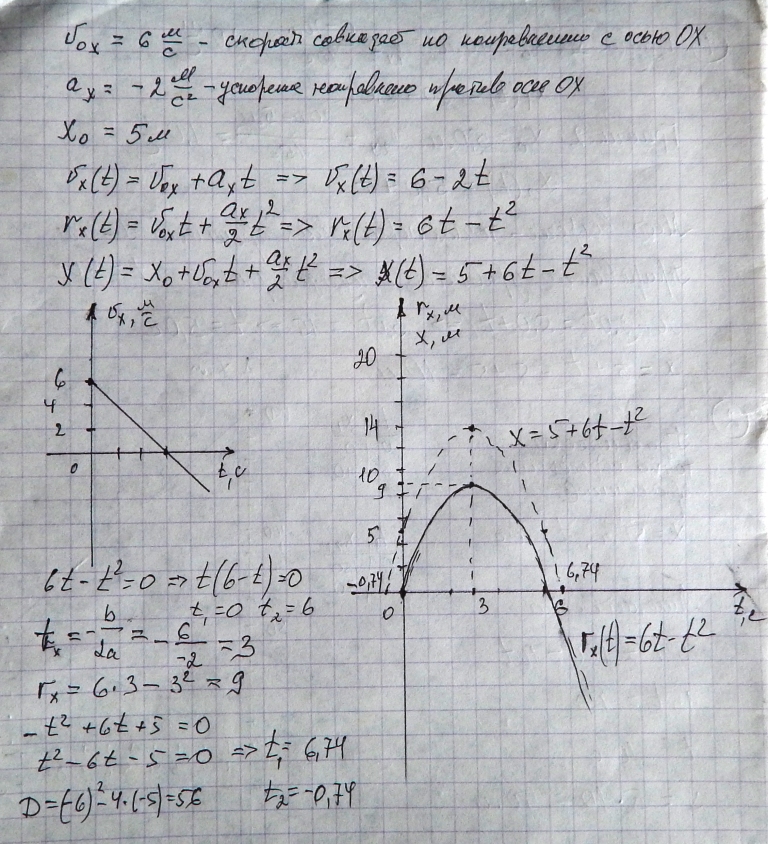 υ₀ₓ = 6 м/с - скорость совпадает по направлению с осью OX
aₓ = -2 м/с² - ускорение направлено против оси OX
x₀ = 5 м
υₓ(t) = υ₀ₓ + aₓt => υₓ(t) = 6 - 2t
rₓ(t) = υ₀ₓt + aₓ/2 t² => rₓ(t) = 6t - t²
x(t) = x₀ + υ₀ₓt + aₓ/2 t² => x(t) = 5 + 6t - t²
υₓ, м/с
6
4
2
0
t, c
rₓ, м
x, м
20
14
x = 5 + 6t - t²
10
9
5
-0,74
0
3
6
6,74
t, c
rₓ(t) = 6t - t²
6t - t² = 0 => t(6 - t) = 0
t₁ = 0 t₂ = 6
tₓ = -b/2a = -6/-2 = 3
rₓ = 6·3 - 3² = 9
-t² + 6t + 5 = 0
t² - 6t - 5 = 0 => t₁ = 6,74
D = (-6)² - 4·(-5) = 56 t₂ = -0,74